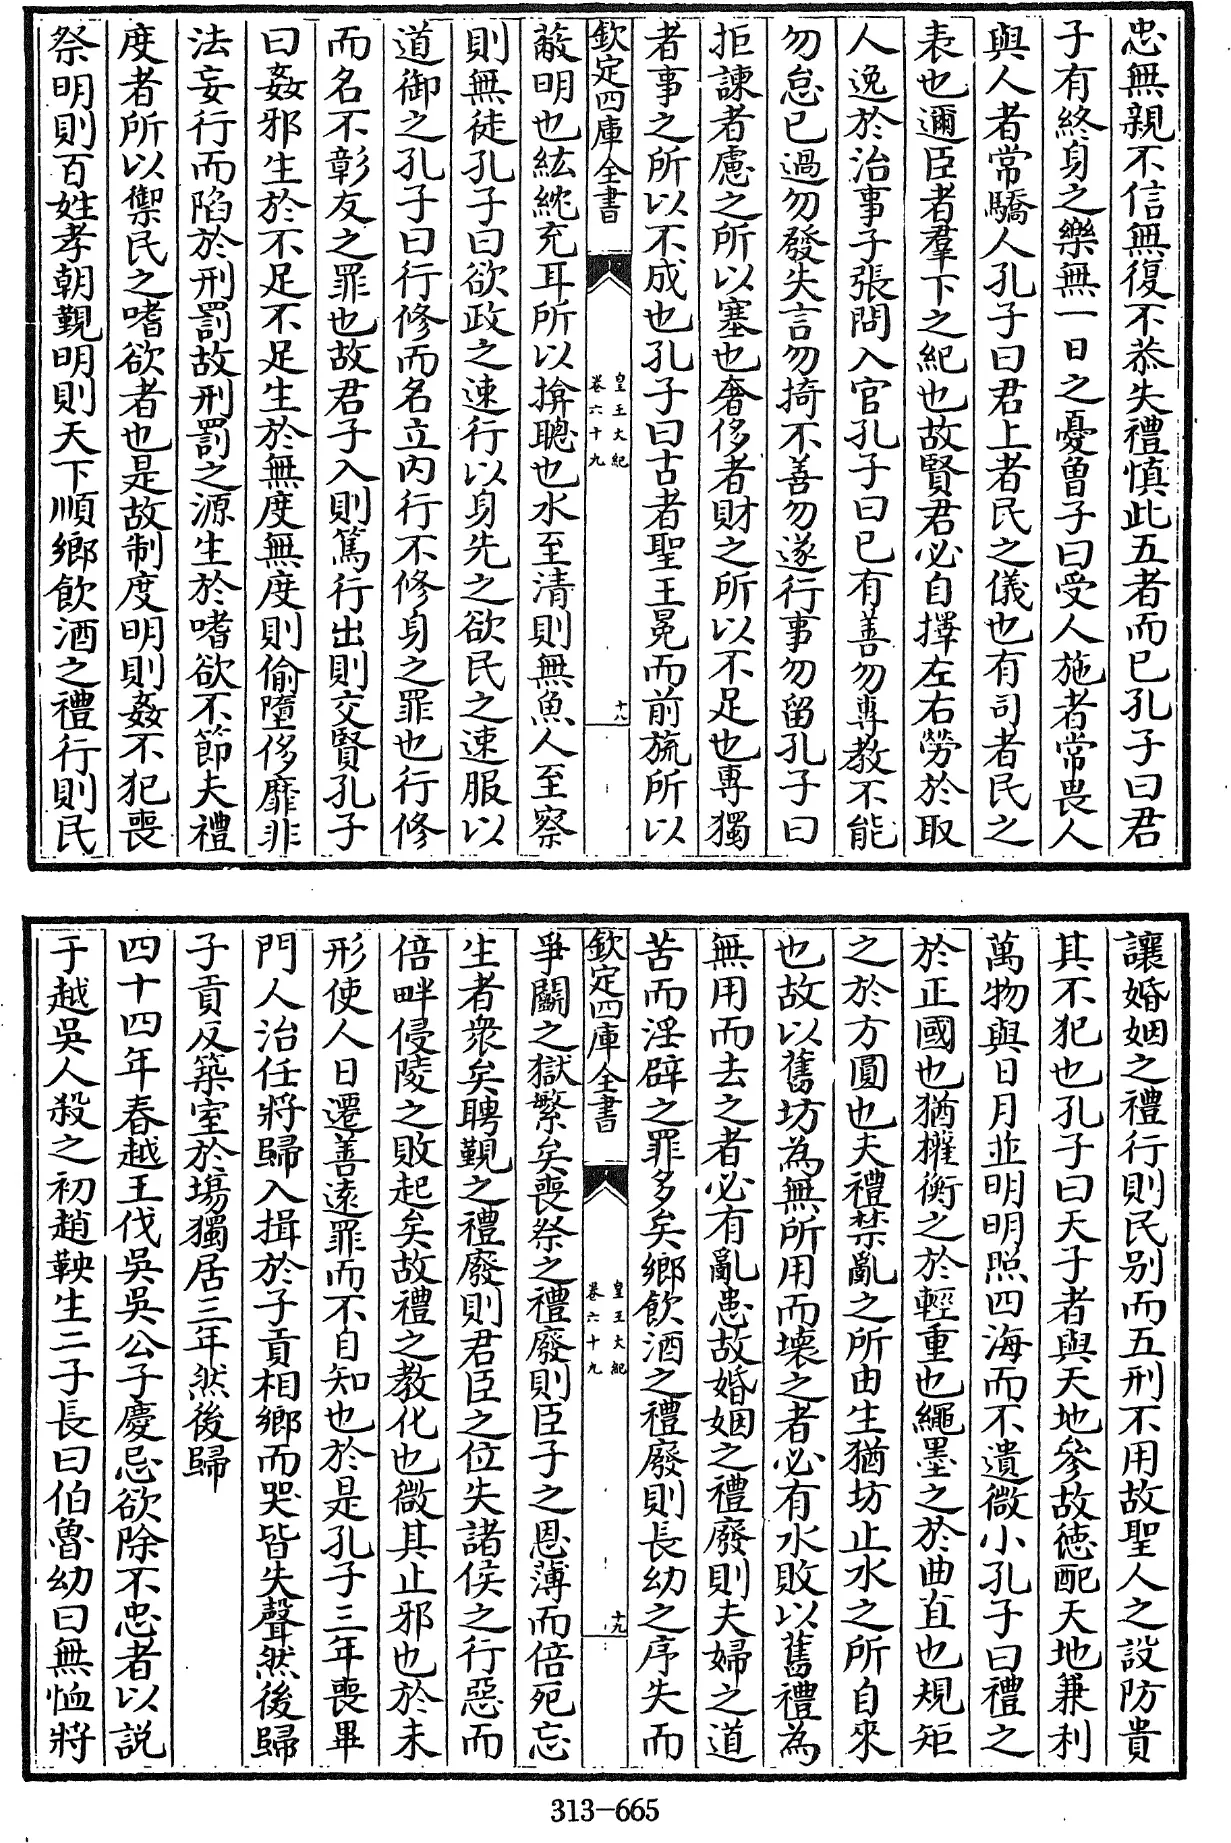 忠無親不信無復不恭失禮慎此五者而已孔子曰君
子有終身之樂無一日之憂曾子曰受人施者常畏人
與人者常驕人孔子曰君上者民之儀也有司者民之
表也邇臣者羣下之紀也故賢君必自擇左右勞於取
人逸於治事子張問入官孔子曰已有善勿專教不能
勿怠已過勿發失言勿掎不善勿遂行事勿留孔子曰
拒諫者慮之所以塞也奢侈者財之所以不足也專獨
者事之所以不成也孔子曰古者聖王冕而前旒所以
欽定四庫全書
皇王大紀
卷六十九
十八
蔽明也紘紞充耳所以揜聰也水至清則無魚人至察
則無徒孔子曰欲政之速行以身先之欲民之速服以
道御之孔子曰行修而名立内行不修身之罪也行修
而名不彰友之罪也故君子入則篤行出則交賢孔子
曰姦邪生於不足不足生於無度無度則偷墮侈靡非
法妄行而陷於刑罰故刑罰之源生於嗜欲不節夫禮
度者所以禦民之嗜欲者也是故制度明則姦不犯喪
祭明則百姓孝朝覲明則天下順鄉飲酒之禮行則民
讓婚姻之禮行則民别而五刑不用故聖人之設防貴
其不犯也孔子曰天子者與天地參故德配天地兼利
萬物與日月並明明照四海而不遺微小孔子曰禮之
於正國也猶權衡之於輕重也繩墨之於曲直也規矩
之於方圓也夫禮禁亂之所由生猶坊止水之所自來
也故以舊坊為無所用而壞之者必有水敗以舊禮為
無用而去之者必有亂患故婚姻之禮廢則夫婦之道
苦而淫辟之罪多矣鄉飲酒之禮廢則長幼之序失而
欽定四庫全書
皇王大紀
卷六十九
十九
爭鬭之獄繁矣喪祭之禮廢則臣子之恩薄而倍死忘
生者衆矣聘覲之禮廢則君臣之位失諸侯之行惡而
倍畔侵陵之敗起矣故禮之教化也微其止邪也於未
形使人日遷善遠罪而不自知也於是孔子三年喪畢
門人治任將歸入揖於子貢相鄉而哭皆失聲然後歸
子貢反築室於塲獨居三年然後歸
四十四年春越王伐吳吳公子慶忌欲除不忠者以説
于越吳人殺之初趙鞅生二子長曰伯魯幼曰無恤將
313-665